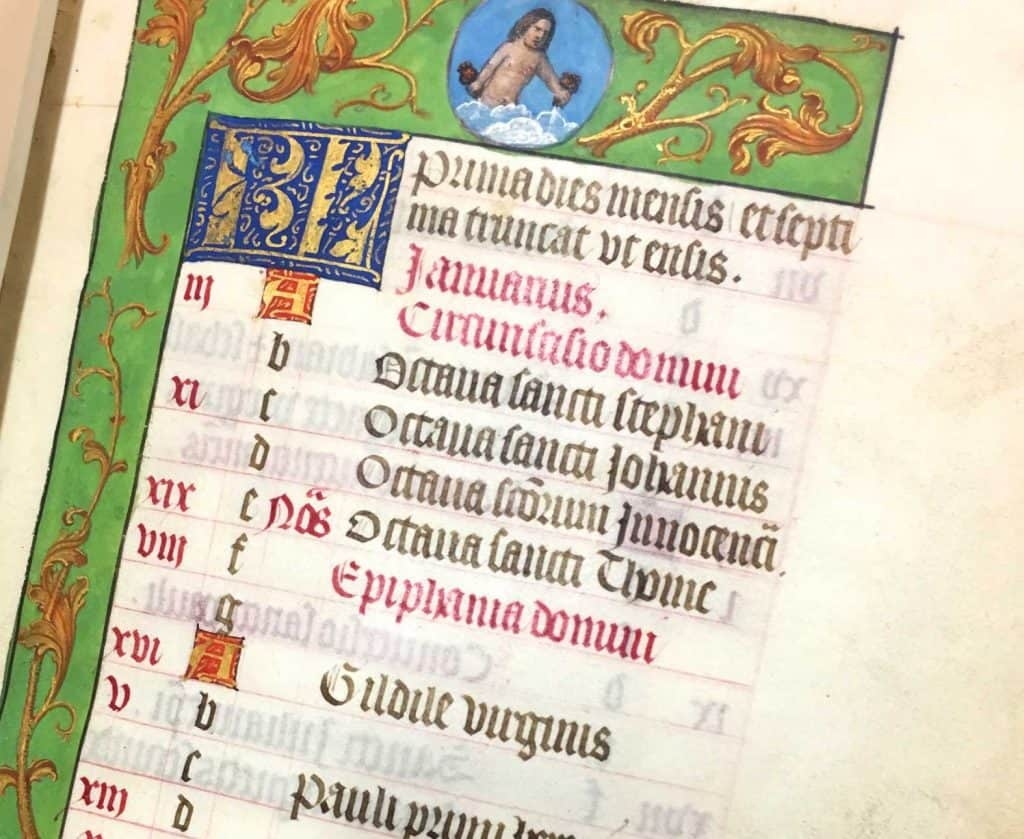 KL Prima dies mensis et septi
ma truncat vt ensis.
Januarius.
iij A Circumsisio domini
b Octaua sancti stephani
xi c Octaua sancti Johannis
d Octaua sctōrum Innocencā
xix e Nōs Octaua sancti Thome
viij f Epiphania domini
g
xvi A Gildile virginis
v b
c Pauli primi
xiij d